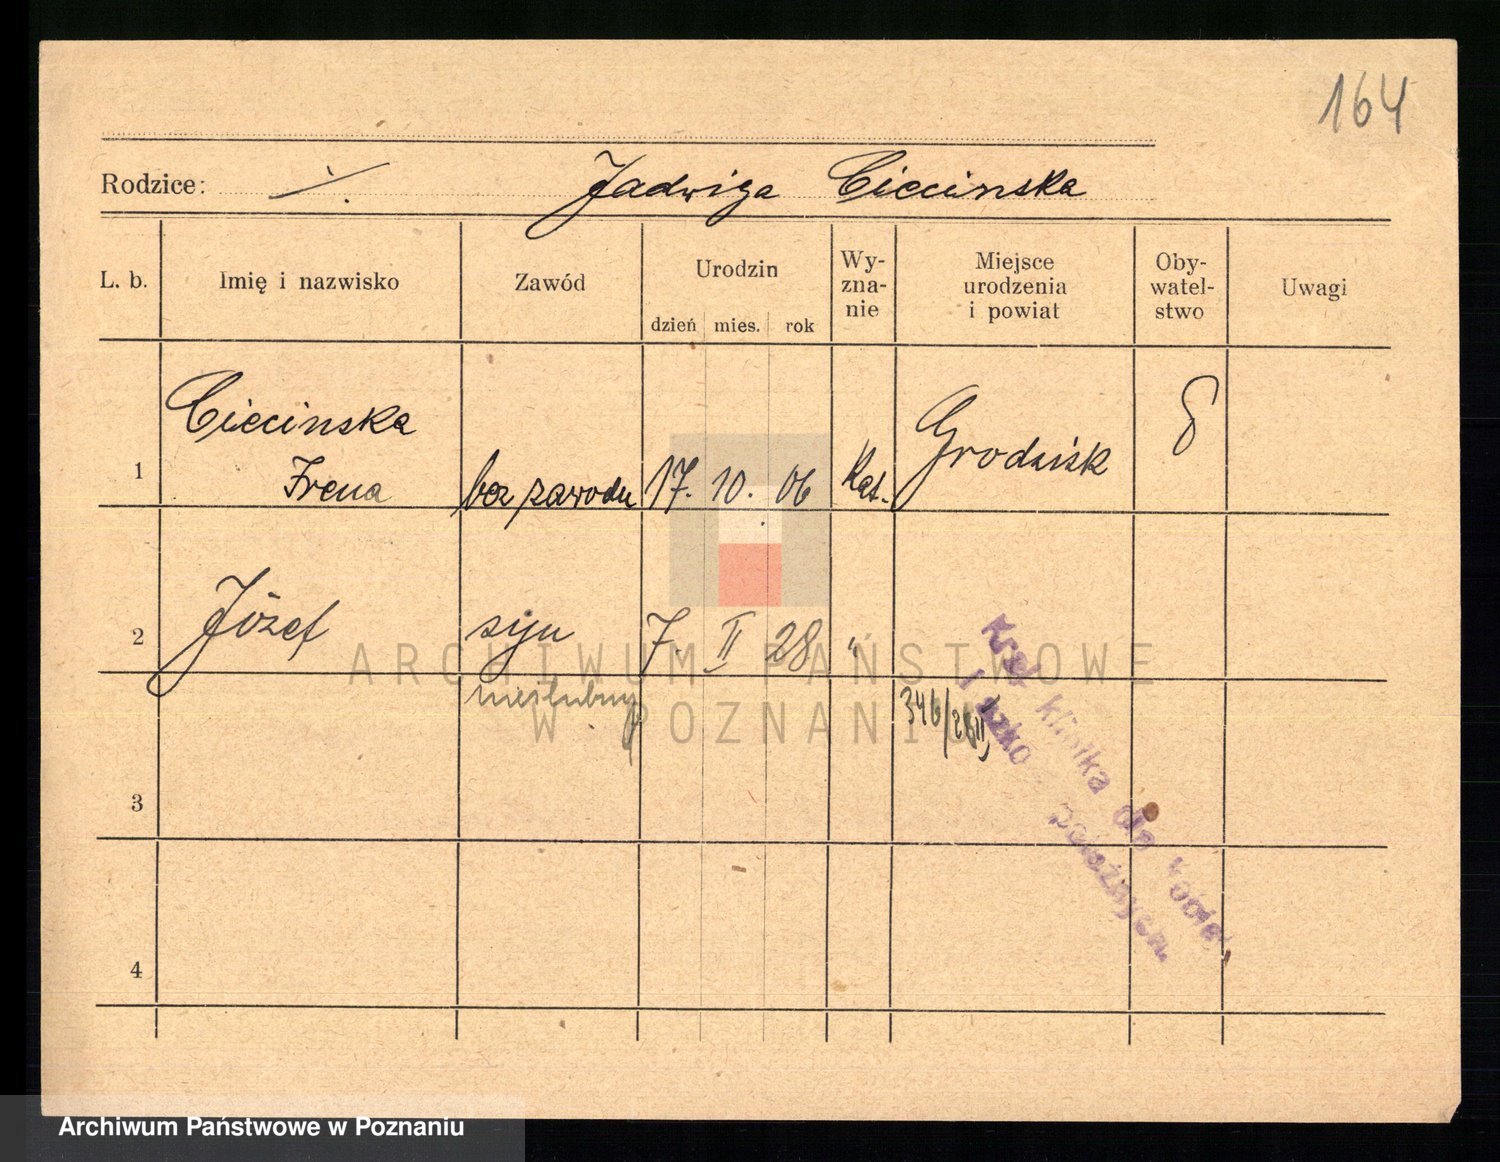 164
Rodzice: Jadwiga Ciecinska
L. b. Imię i nazwisko Zawód Urodzin dzień mies. rok Wy-zna-nie Miejsce urodzenia i powiat Oby-watel-stwo Uwagi
Ciecinska
1 Irena bez zawodu 17. 10. 06 Kat. Grodzisk
2 Józef syn 7. II 28 "
nieślubny 346/28
3
4
klinika dla
położnych.
ARCHIWUM PAŃSTWOWE
W POZNANIU
Archiwum Państwowe w Poznaniu